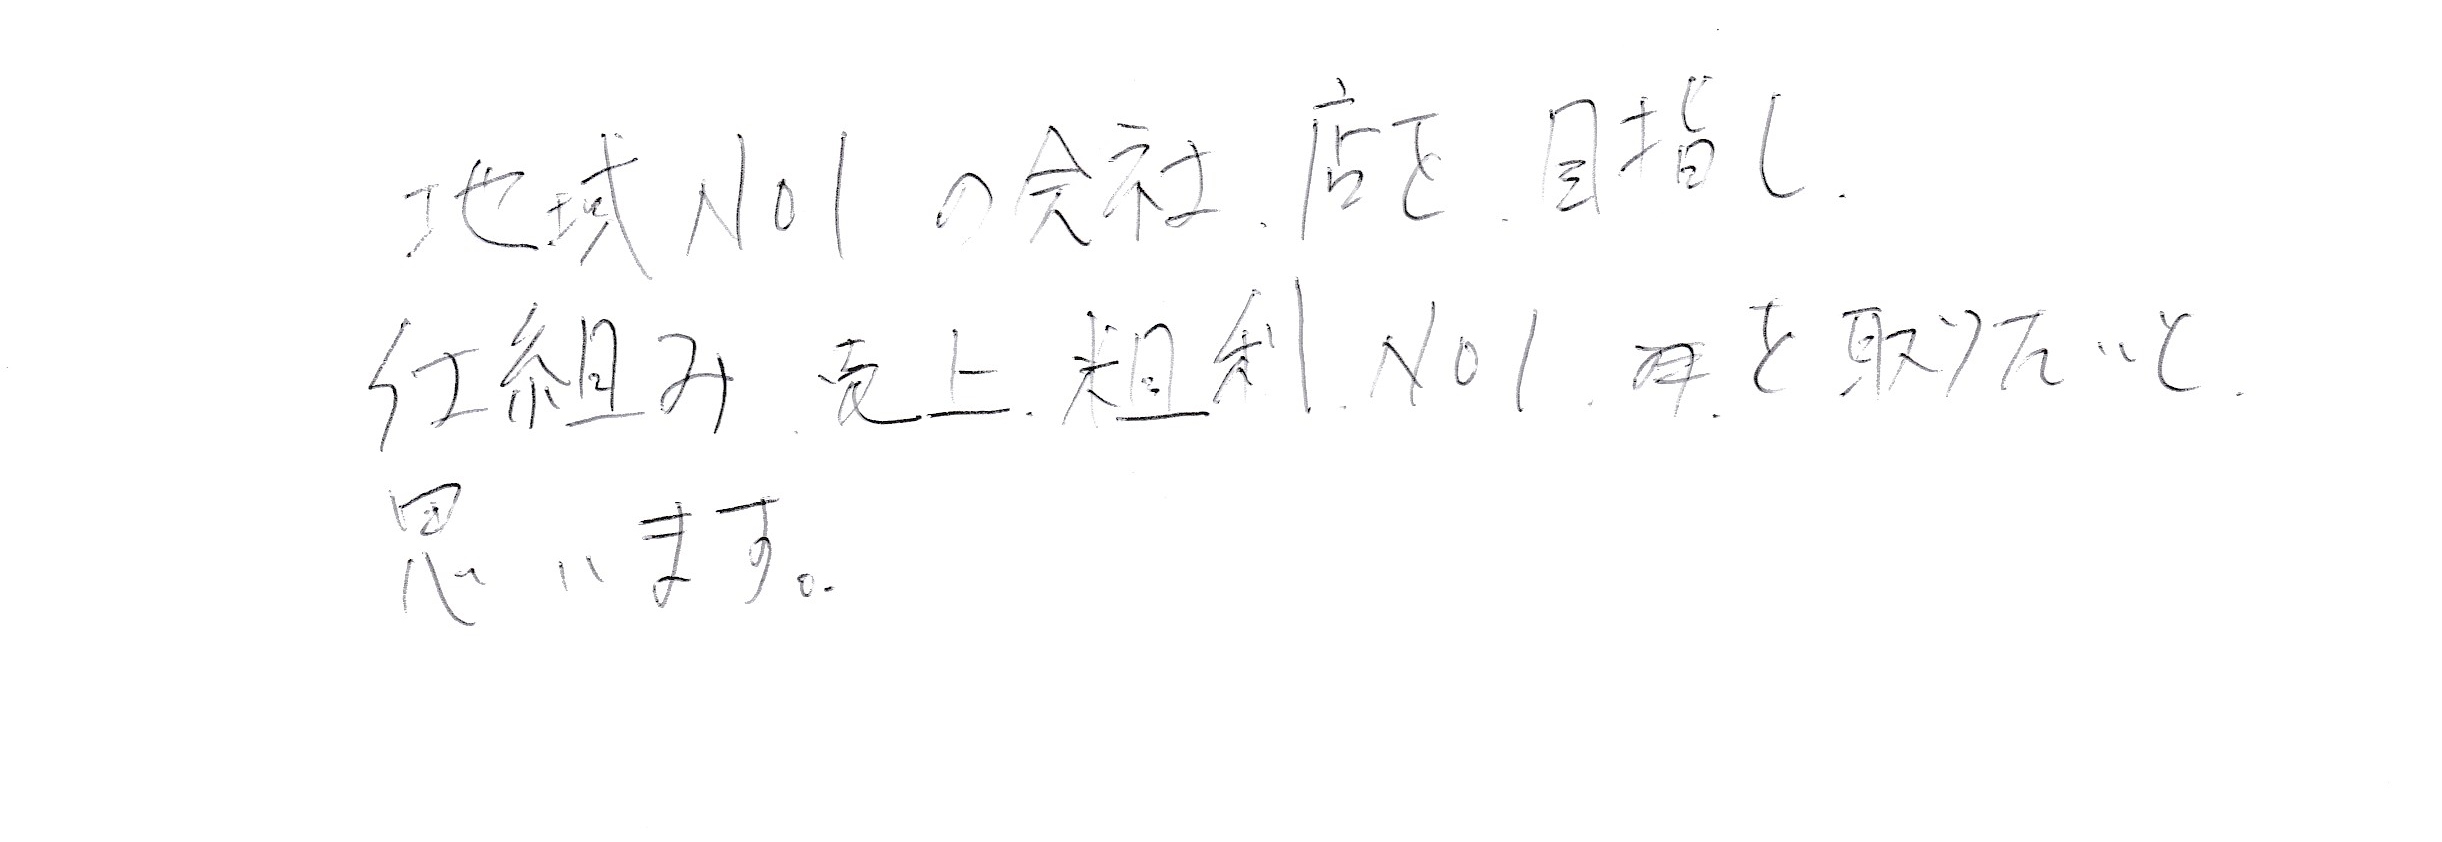 地域No1の会社、店を、目指し、
仕組み、売上、粗利、No1、を取りたいと、
思います。